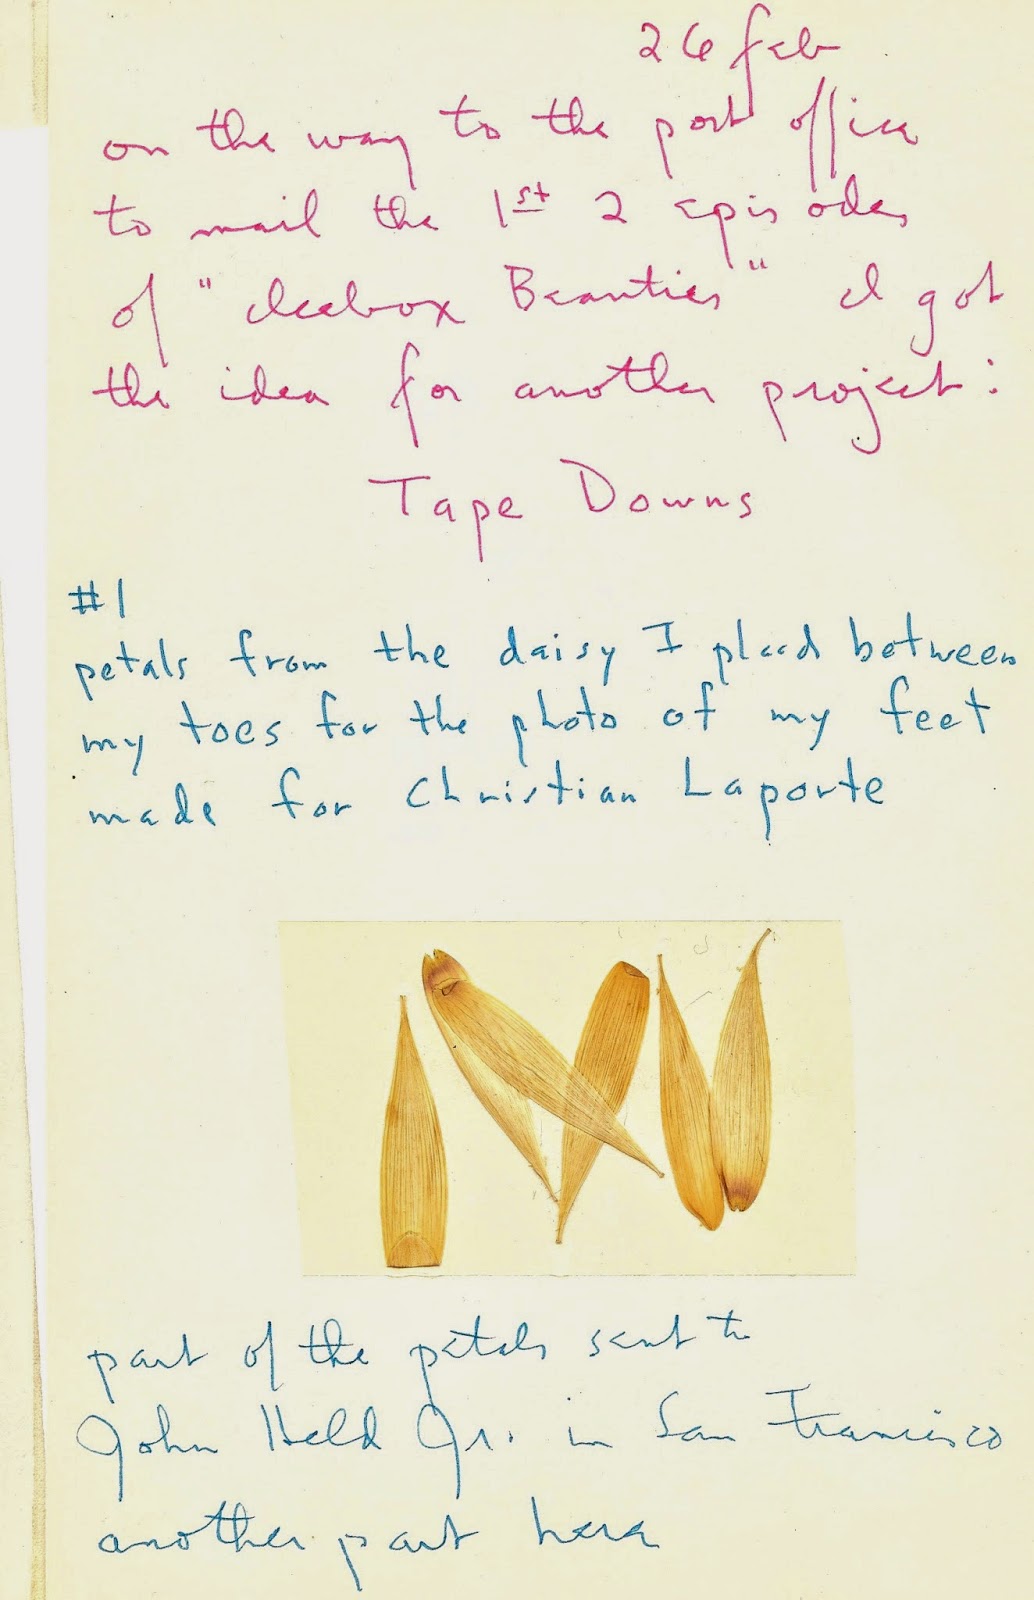 26 feb
on the way to the post office
to mail the 1st 2 episodes
of "Icebox Beauties" I got
the idea for another project:
Tape Downs
#1
petals from the daisy I placed between
my toes for the photo of my feet
made for Christian Laporte
part of the petals sent to
John Held Jr. in San Francisco
another part here